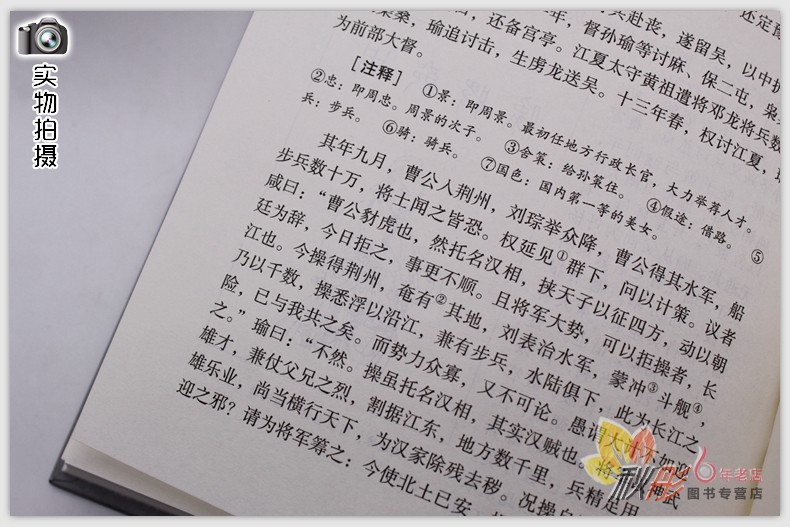 实物拍摄
兵赴丧，遂留吴，以中护
还备宫亭。江夏太守黄祖遣将邓龙将兵数
督孙瑜等讨麻、保二屯，枭
瑜追讨击，生虏龙送吴。十三年春，权讨江夏，
为前部大督。
［注释］
①景：即周景。最初任地方行政长官，大力举荐人才。
②忠：即周忠。周景的次子。 ③舍策：给孙策住。 ④假途：借路。 ⑤
兵：步兵。 ⑥骑：骑兵。 ⑦国色：国内第一等的美女。
其年九月，曹公入荆州，刘琮举众降，曹公得其水军，船
步兵数十万，将士闻之皆恐。权延见①群下，问以计策。议者
咸曰：“曹公豺虎也，然托名汉相，挟天子以征四方，动以朝
廷为辞，今日拒之，事更不顺。且将军大势，可以拒操者，长
江也。今操得荆州，奄有②其地，刘表治水军，蒙冲③斗舰④，
乃以千数，操悉浮以沿江，兼有步兵，水陆俱下，此为长江之
险，已与我共之矣。而势力众寡，又不可论。愚谓大计不如迎
之。”瑜曰：“不然。操虽托名汉相，其实汉贼也。将军以神武
雄才，兼仗父兄之烈，割据江东，地方数千里，兵精足用，
雄乐业，尚当横行天下，为汉家除残去秽。况操自
迎之邪？请为将军筹之：今使北土已安，
秋彤
6年老店
图书专营店